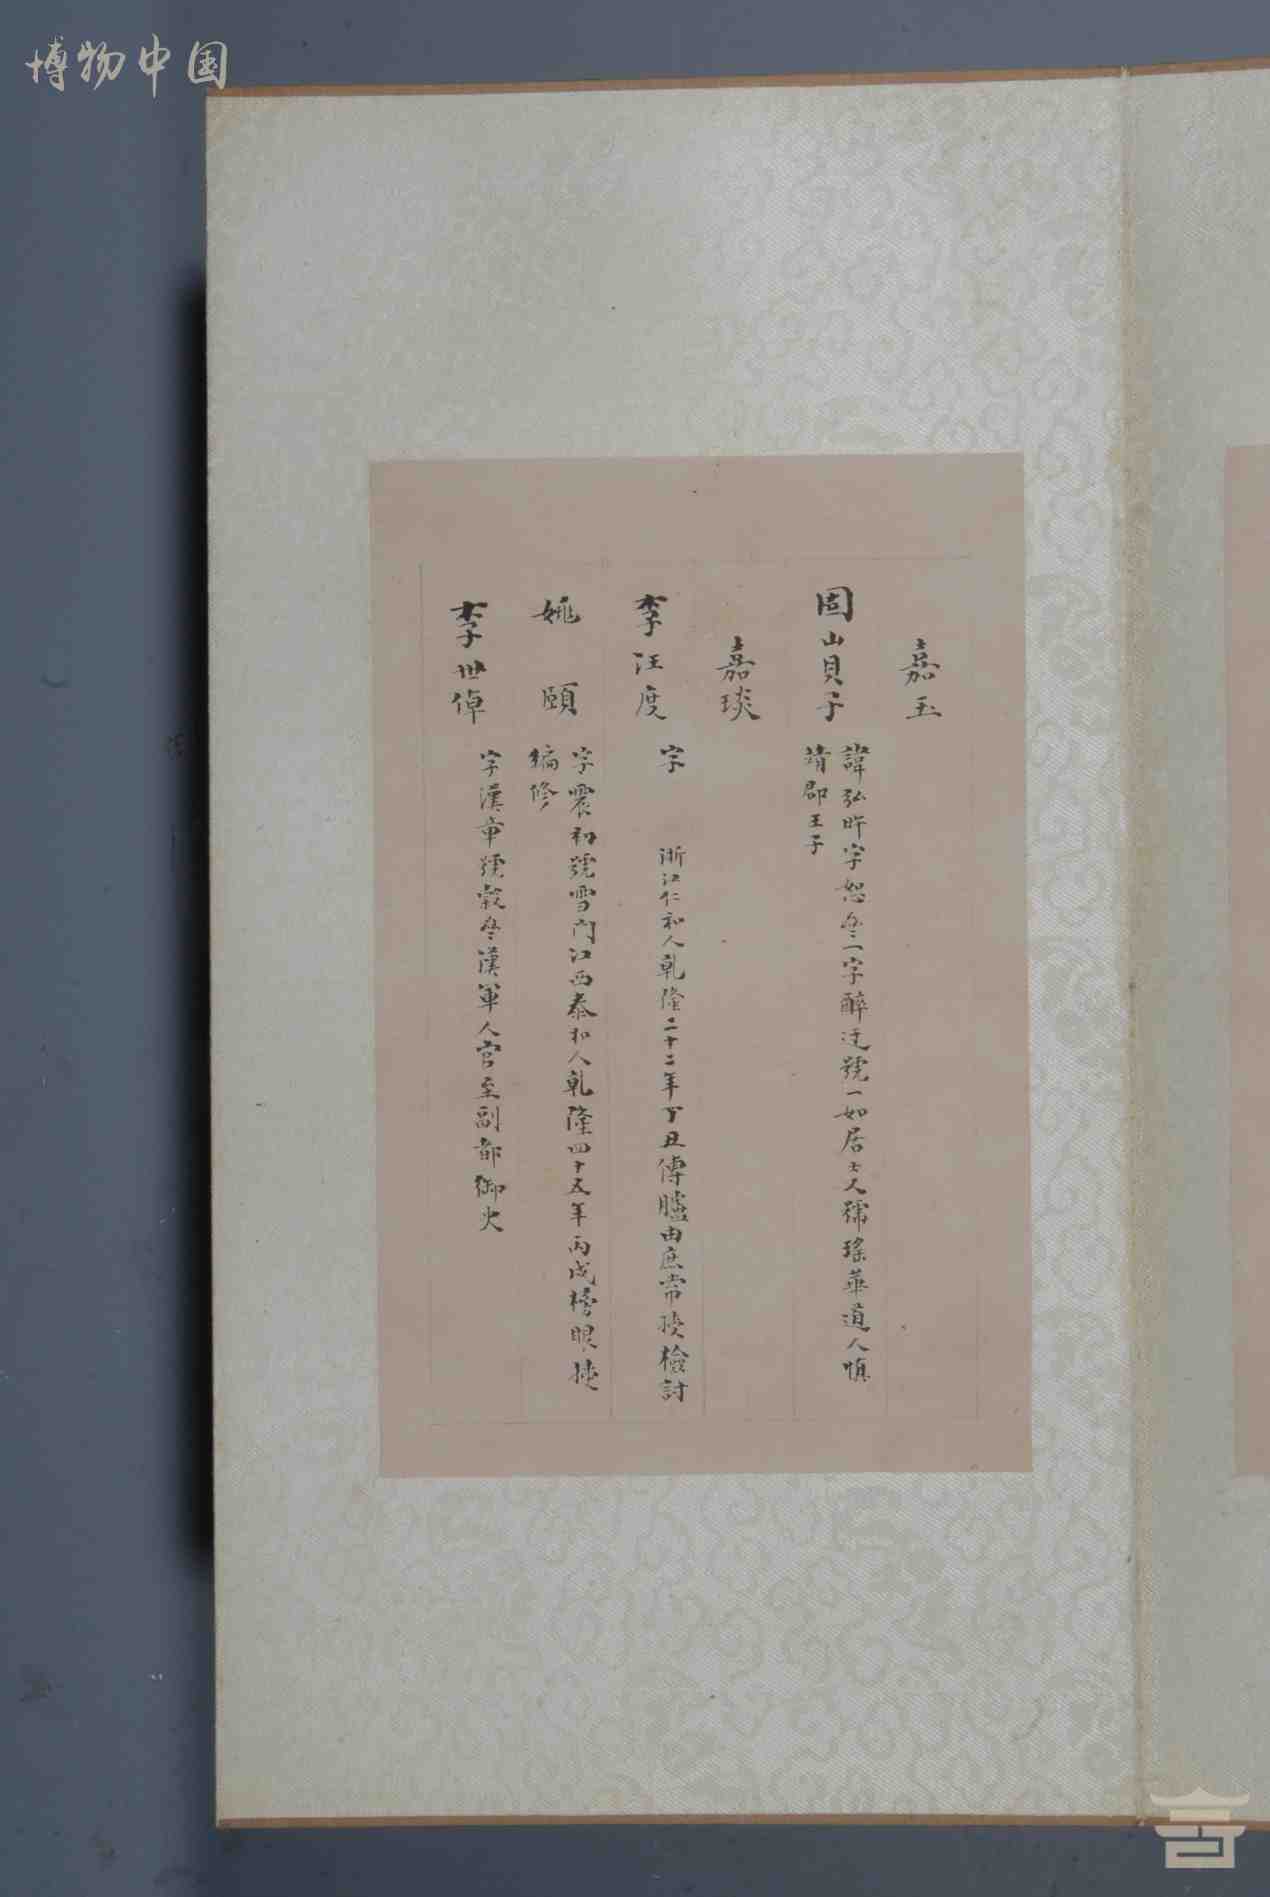 博物中国
嘉玉
固山貝子
諱弘旿字恕亝一字醉迂號一如居士又號瑤華道人慎
靖郡王子
嘉琰
李汪度
字 浙江仁和人乾隆二十二年丁丑傳臚由庶常授檢討
姚頤
字震初號雪門江西泰和人乾隆四十五年丙戌榜眼授
編修
李世倬
字漢章號穀亝漢軍人官至副都御史